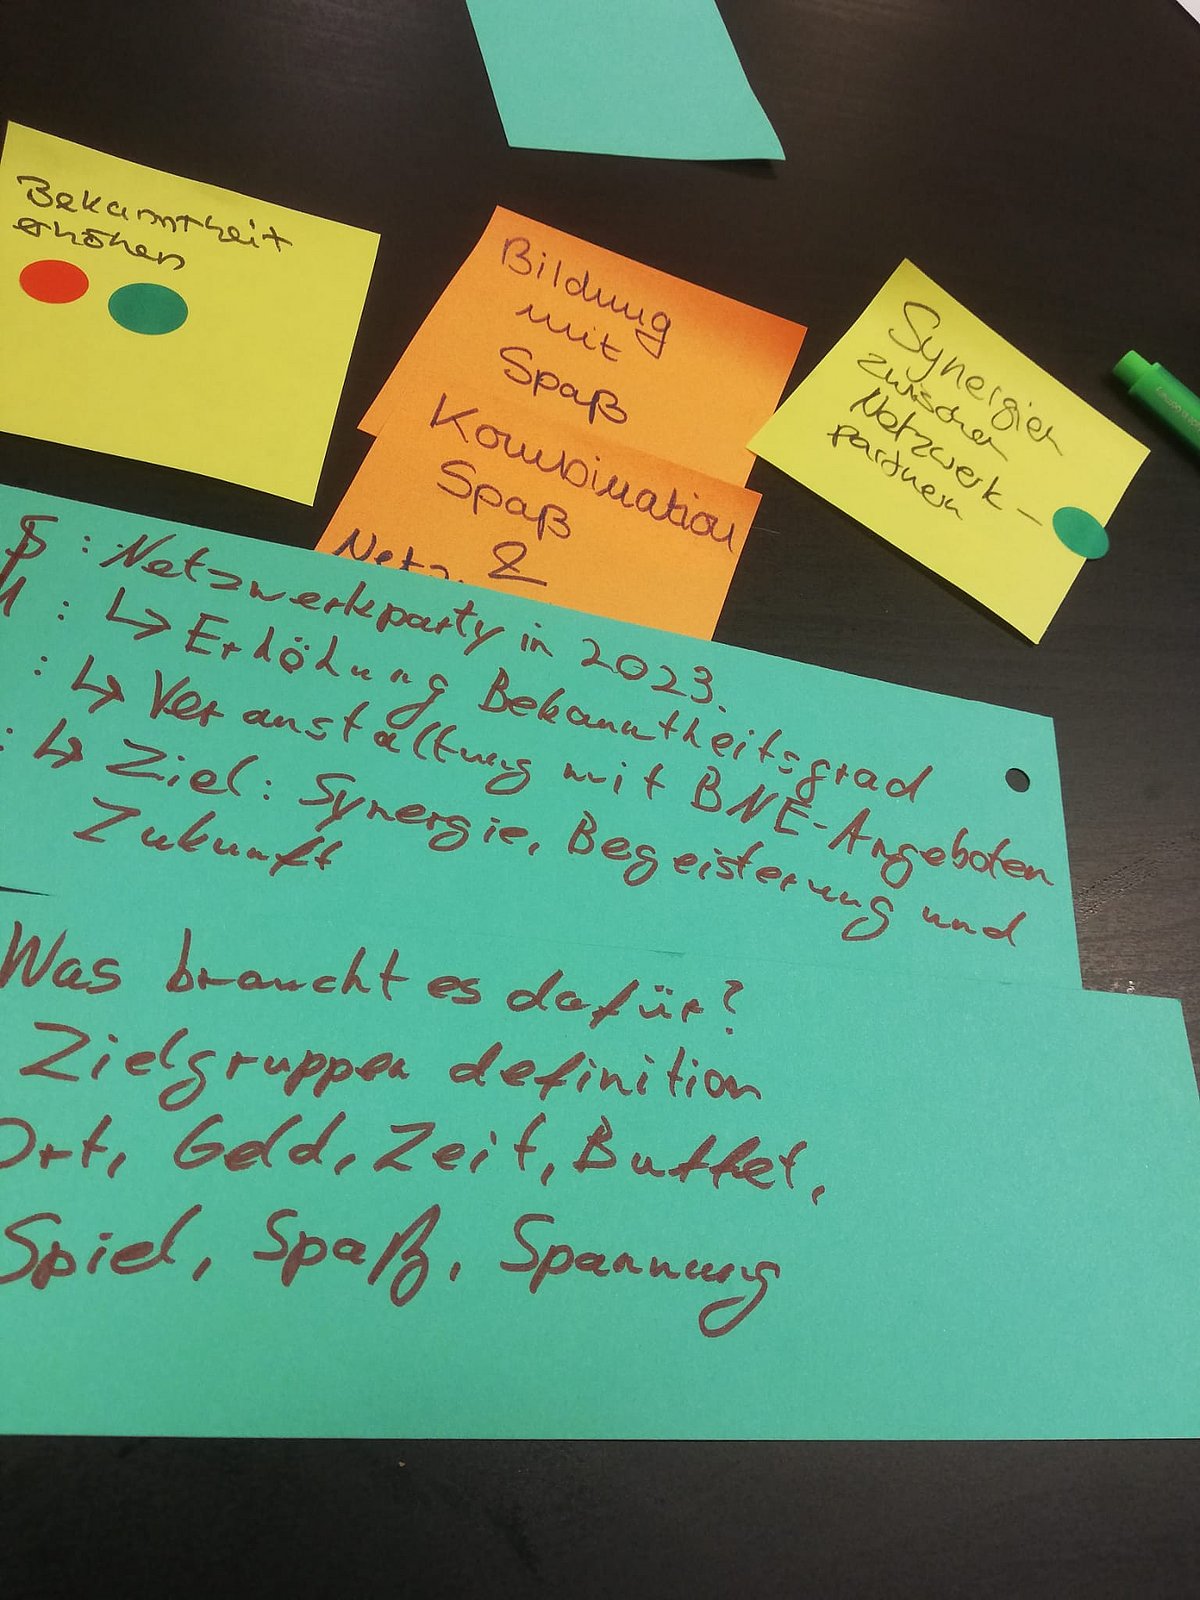 Bekanntheit
erhöhen
Bildung
mit
Spaß
Kombination
Spaß
&
Synergien
zwischen
Netzwerk-
partnern
: Netzwerkparty in 2023.
: ↳ Erhöhung Bekanntheitsgrad
: ↳ Veranstaltung mit BNE-Angeboten
: ↳ Ziel: Synergie, Begeisterung und
Zukunft
Was braucht es dafür?
Zielgruppen definition
Ort, Geld, Zeit, Buffet,
Spiel, Spaß, Spannung